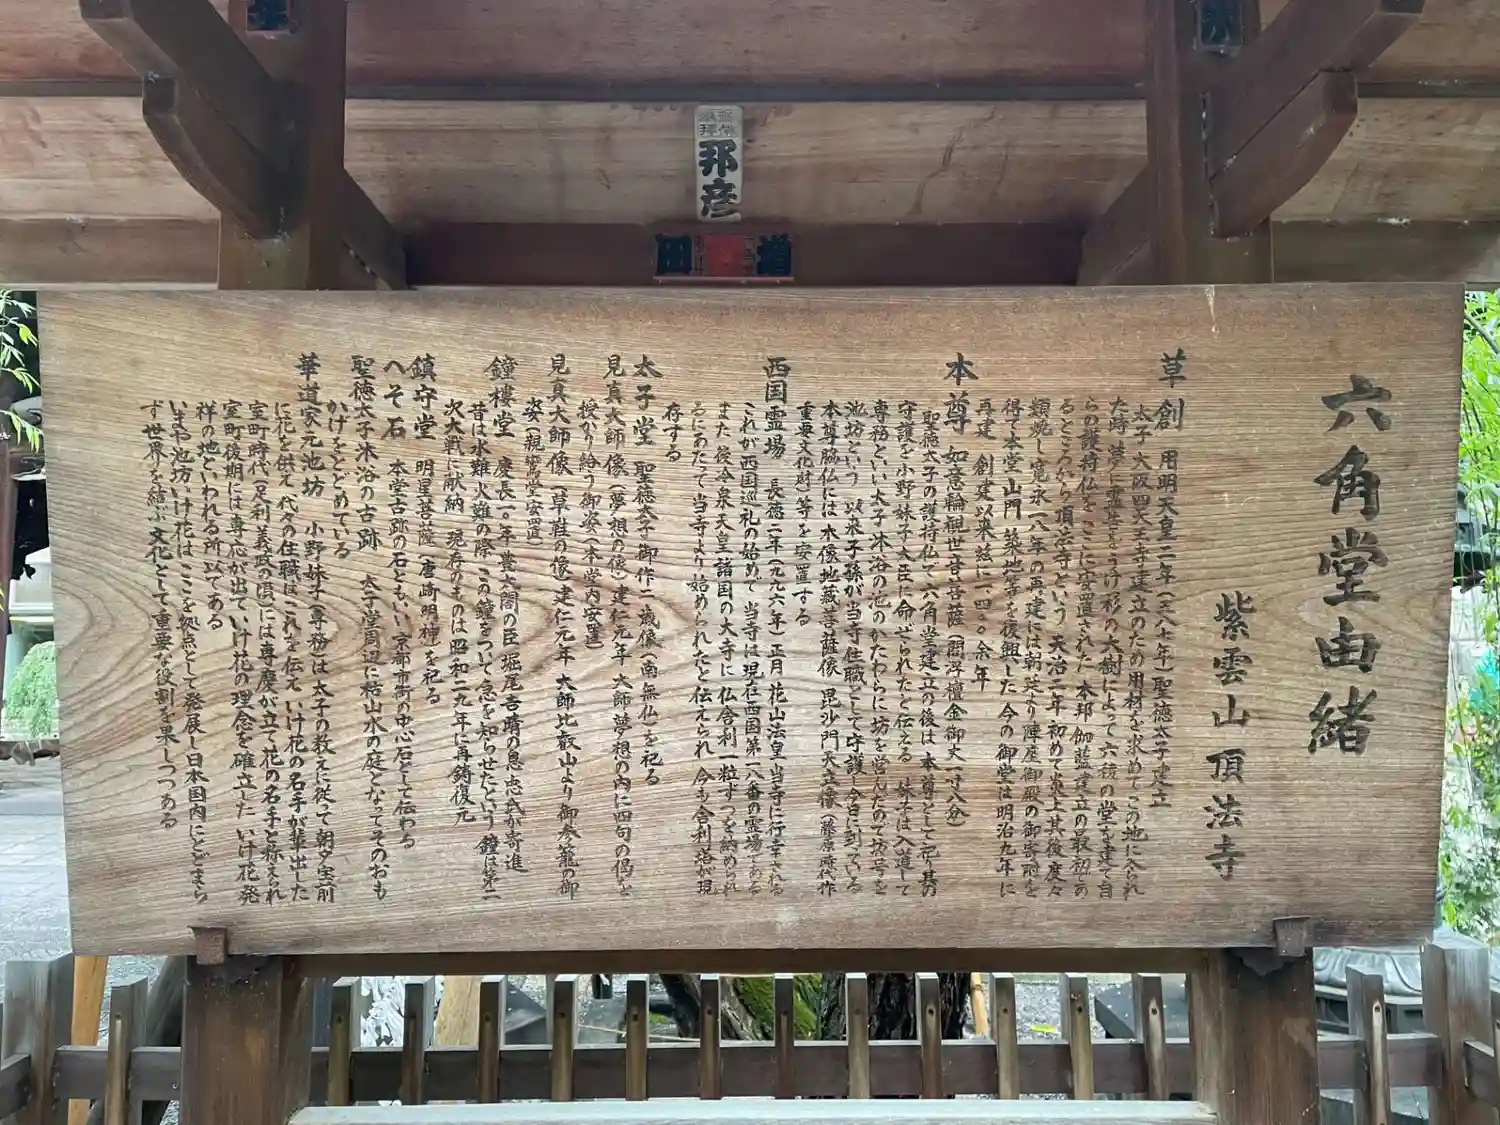 六角堂由緒
紫雲山 頂法寺
草創 用明天皇二年(五八七年)聖徳太子建立
太子大阪四天王寺建立のため用材を求めてこの地に入られ
た時 夢に霊告をうけ杉の大樹によって六稜の堂を建て自
らの護持仏をここに安置された 本邦伽藍建立の最初であ
るところから頂法寺という 天治二年初めて炎上其後度々
類焼し寛永一八年の再建には朝廷より陣座御殿の御寄附を
得て本堂山門 築地等を復興した 今の御堂は明治九年に
再建 創建以来玆に一四〇〇余年
本尊 如意輪観世音菩薩(閻浮檀金御丈一寸八分)
聖徳太子の護持仏で六角堂建立の後は本尊として祀り其の
守護を小野妹子大臣に命ぜられたと伝える 妹子は入道して
専務といい太子沐浴の池のかたわらに坊を営んだので坊号を
池坊という 以来子孫が当寺住職として守護今日に到っている
本尊脇仏には木像地蔵菩薩像 毘沙門天立像(藤原時代作
重要文化財)等を安置する
西国霊場 長徳二年(九九六年)正月 花山法皇当寺に行幸される
これが西国巡礼の始めで当寺は現在西国第一八番の霊場である
また後冷泉天皇諸国の大寺に仏舎利一粒ずつを納められ
るにあたって当寺より始められたと伝えられ 今も舎利塔が現
存する
太子堂 聖徳太子御作二歳像(南無仏)を祀る
見真大師像(夢想の像)建仁元年大師夢想の内に四句の偈を
授かり給う御姿(本堂内安置)
見真大師像(草鞋の像)建仁元年 大師比叡山より御参籠の御
姿(親鸞堂安置)
鐘樓堂 慶長一〇年豊太閤の臣堀尾吉晴の息忠氏が寄進
昔は水難火難の際 この鐘をついて急を知らせたという 鐘は第二
次大戦に献納 現存のものは昭和二九年に再鋳復元
鎮守堂 明星菩薩(唐崎明神)を祀る
へそ石 本堂古跡の石ともいい京都市街の中心石として伝わる
聖徳太子沐浴の古跡 太子堂周辺に枯山水の庭となってそのおも
かげをとどめている
華道家元池坊 小野妹子(専務)は太子の教えに従って朝夕宝前
に花を供え代々の住職はこれを伝えいけ花の名手が輩出した
室町時代(足利義政の頃)には専慶が立て花の名手と称えられ
室町後期には専応が出ていけ花の理念を確立した いけ花発
祥の地といわれる所以である
いまや池坊いけ花は ここを拠点として発展し日本国内にとどまら
ず世界を結ぶ文化として重要な役割を果しつつある
邦彦